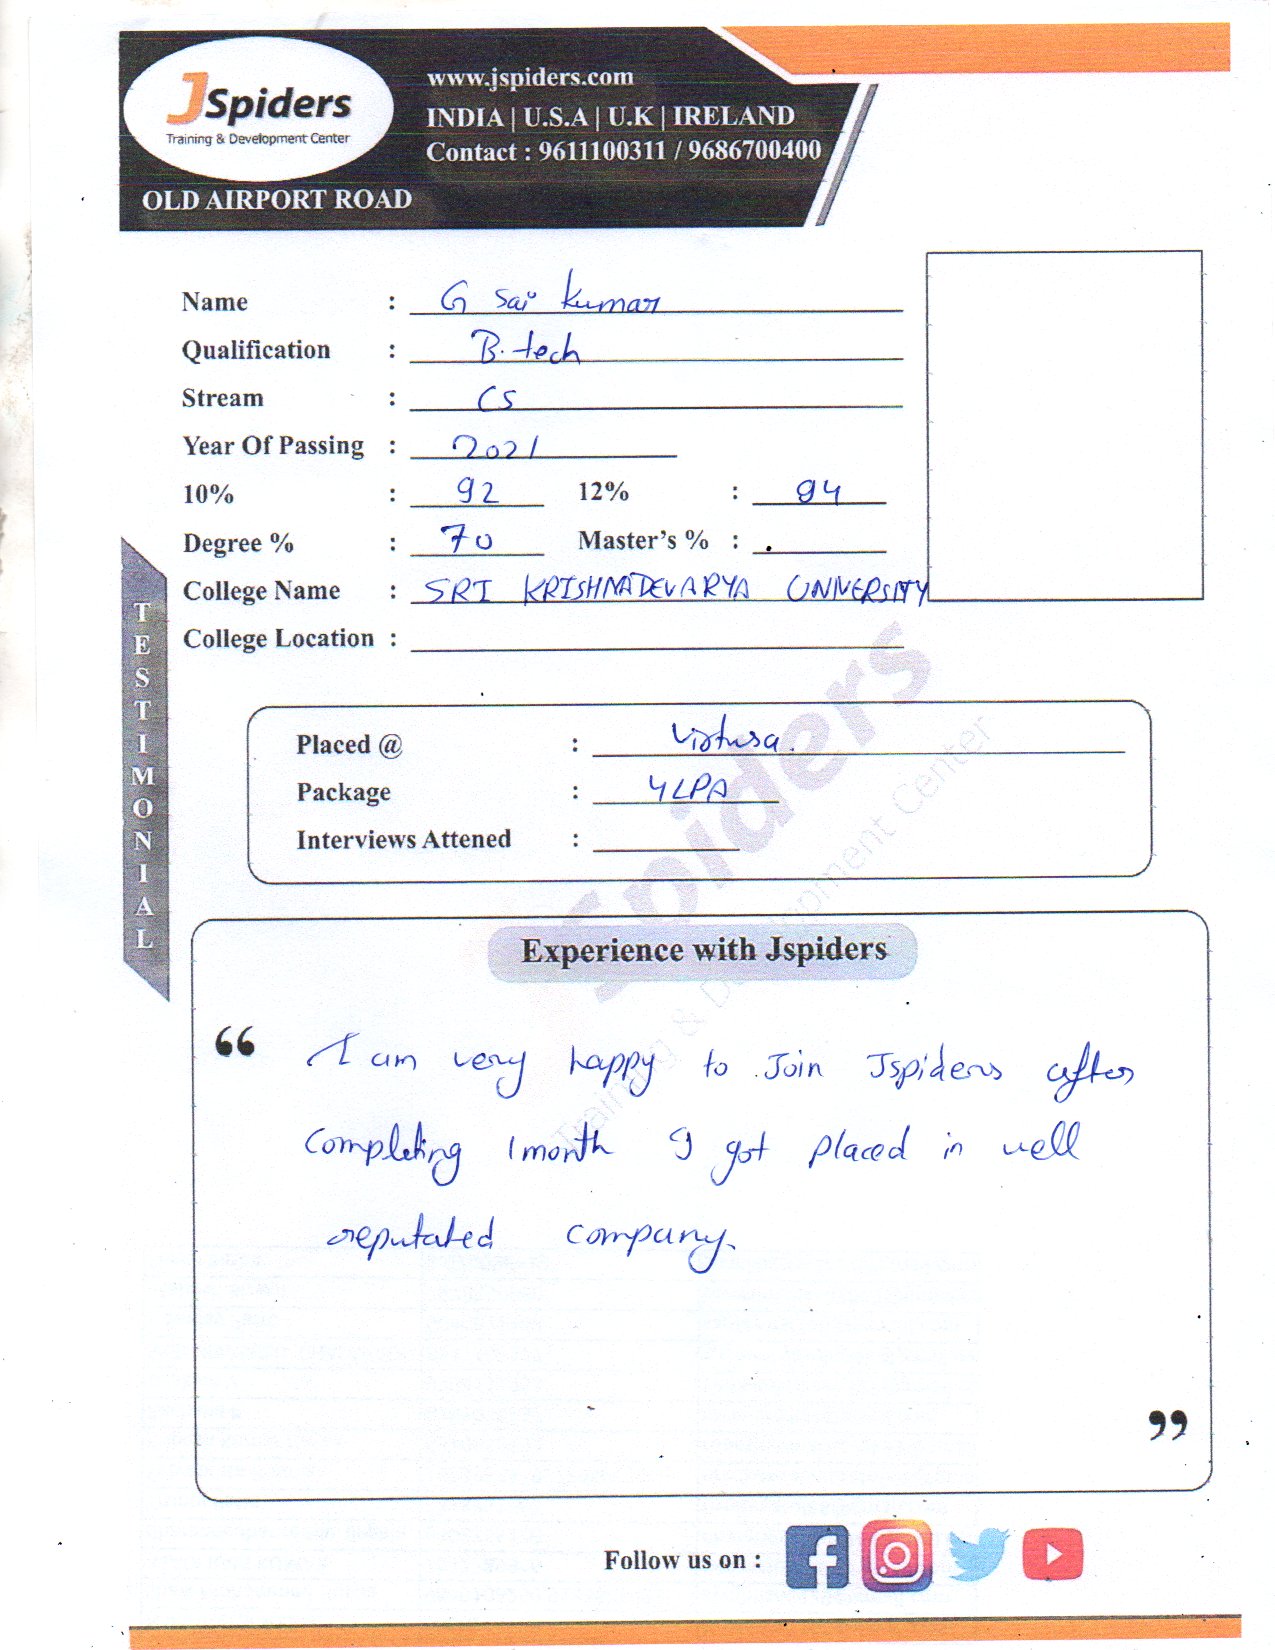 JSpiders
Training & Development Center
OLD AIRPORT ROAD
www.jspiders.com
INDIA | U.S.A | U.K | IRELAND
Contact : 9611100311 / 9686700400
Name : G Sai Kumar
Qualification : B.tech
Stream : CS
Year Of Passing : 2021
10% : 92 12% : 94
Degree % : 70 Master's % : .
College Name : SRI KRISHNADEVARYA UNIVERSITY
College Location :
TESTIMONIAL
Placed @ : Virtusa.
Package : 4LPA
Interviews Attened :
Spiders
Training & Development Center
Experience with Jspiders
“ I am very happy to Join Jspiders after
Completing 1month I got placed in well
reputated company.
”
Follow us on :